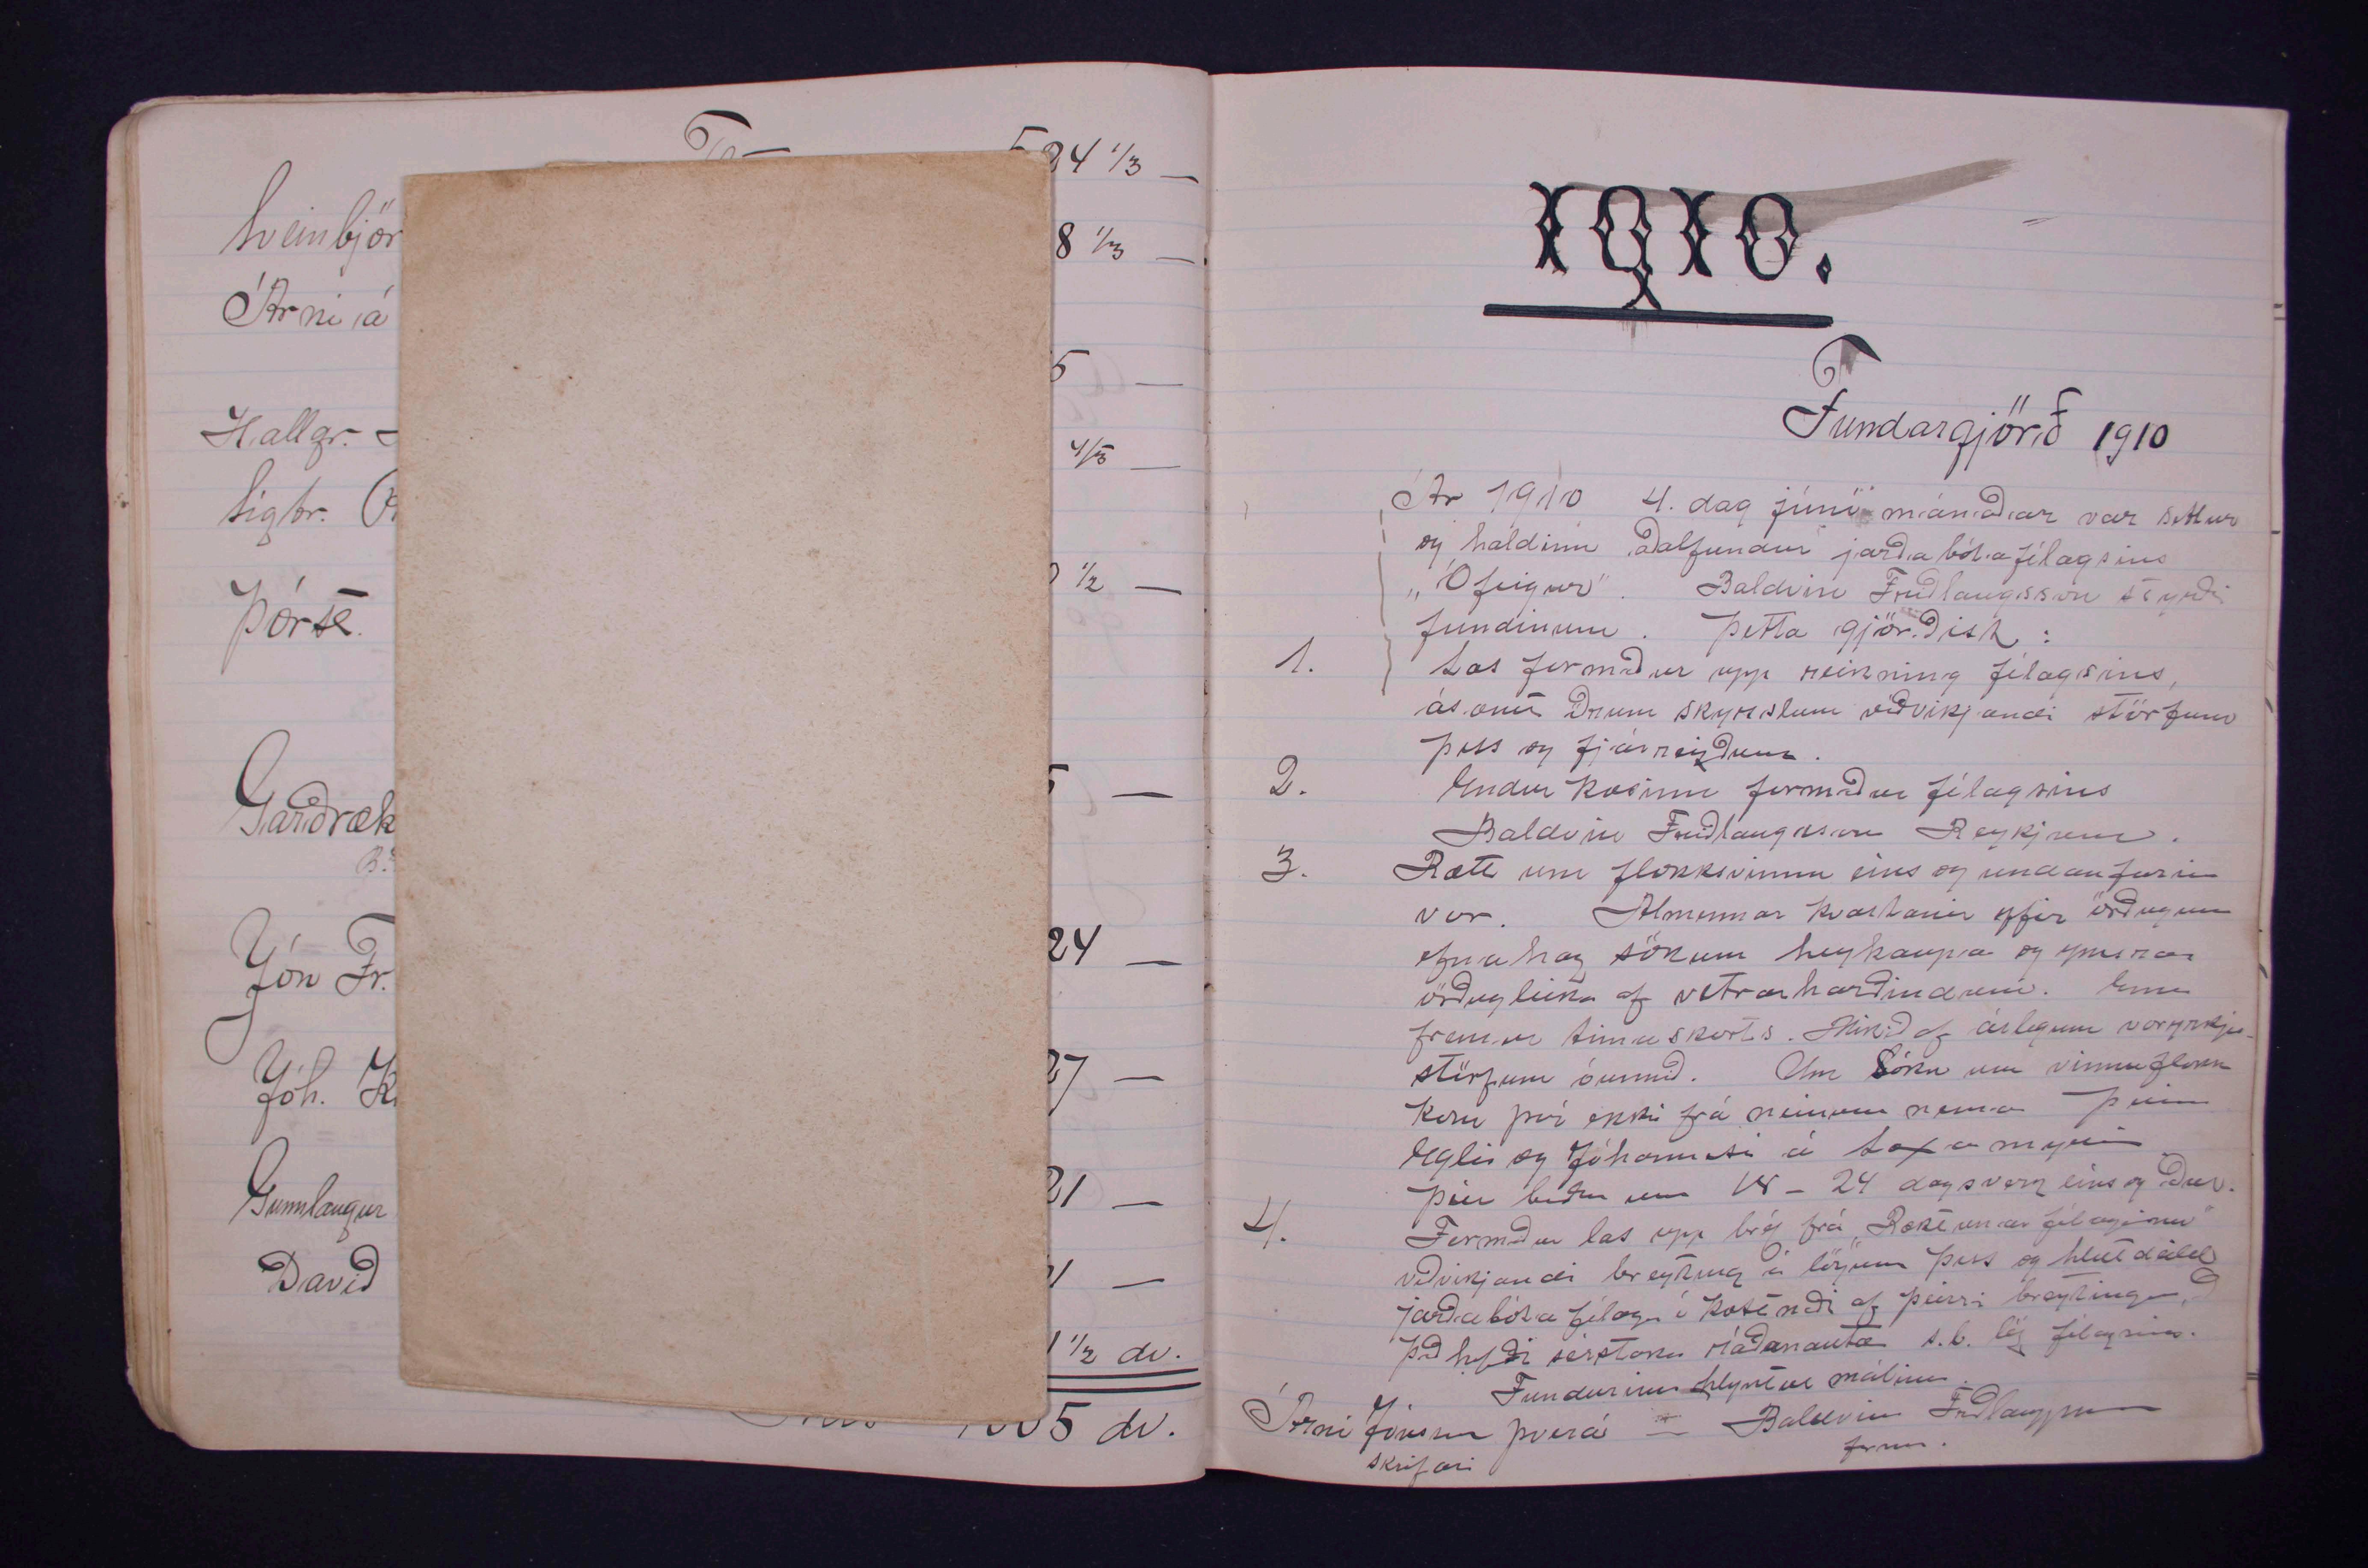 524 1/3 —
Sveinbjör
8 1/3 —
Árni á
5 —
Hallgr.
4/5 —
Sigtr.
1/2 —
Þorst.
5 —
Garðræk
24 —
Jón Fr.
27 —
Jóh. K
21 —
Gunnlaugur
1 —
Davíð
1 1/2 dv.
5 dv.
1910.
Fundargjörð 1910
Ár 1910 4. dag júní mánaðar var settur
og haldinn aðalfundur jarðabótafélagsins
„Ófeigur". Baldvin Friðlaugsson stýrði
fundinum. Þetta gjörðist:
1. Las formaður upp reikning félagsins,
ásamt öðrum skyrslum viðvikjandi störfum
þess og fjárreiðum.
2. Endurkosinn formaður félagsins
Baldvin Friðlaugsson Reykjum.
3. Rætt um flokksvinnu eins og undanfarin
vor. Almennar kvartanir yfir örðugum
efnahag sökum heykaupa og ymsra
örðugleika af vetrarharðindum. Enn
fremur timaskorts. Mikið af árlegum voryrkju-
störfum óunnið. Um sókn um vinnuflokk
kom því ekki frá neinum nema þeim
Egli og Jóhannesi á Laxamýri
þeir biðu um 18 - 24 dagsverk eins og áður.
4. Formaður las upp bréf frá „Ræktunarfélaginu"
viðvikjandi breyting á lögum þess og hlutdeild
jarðabótafélaga í kostnaði af þeirri breytingu,
það hefði sérstaka ráðanauta s.b. lög félagsins.
Fundurinn hlyntur málinu.
Árni Jónsson Þverá — Baldvin Friðlaugsson
skrifari form.